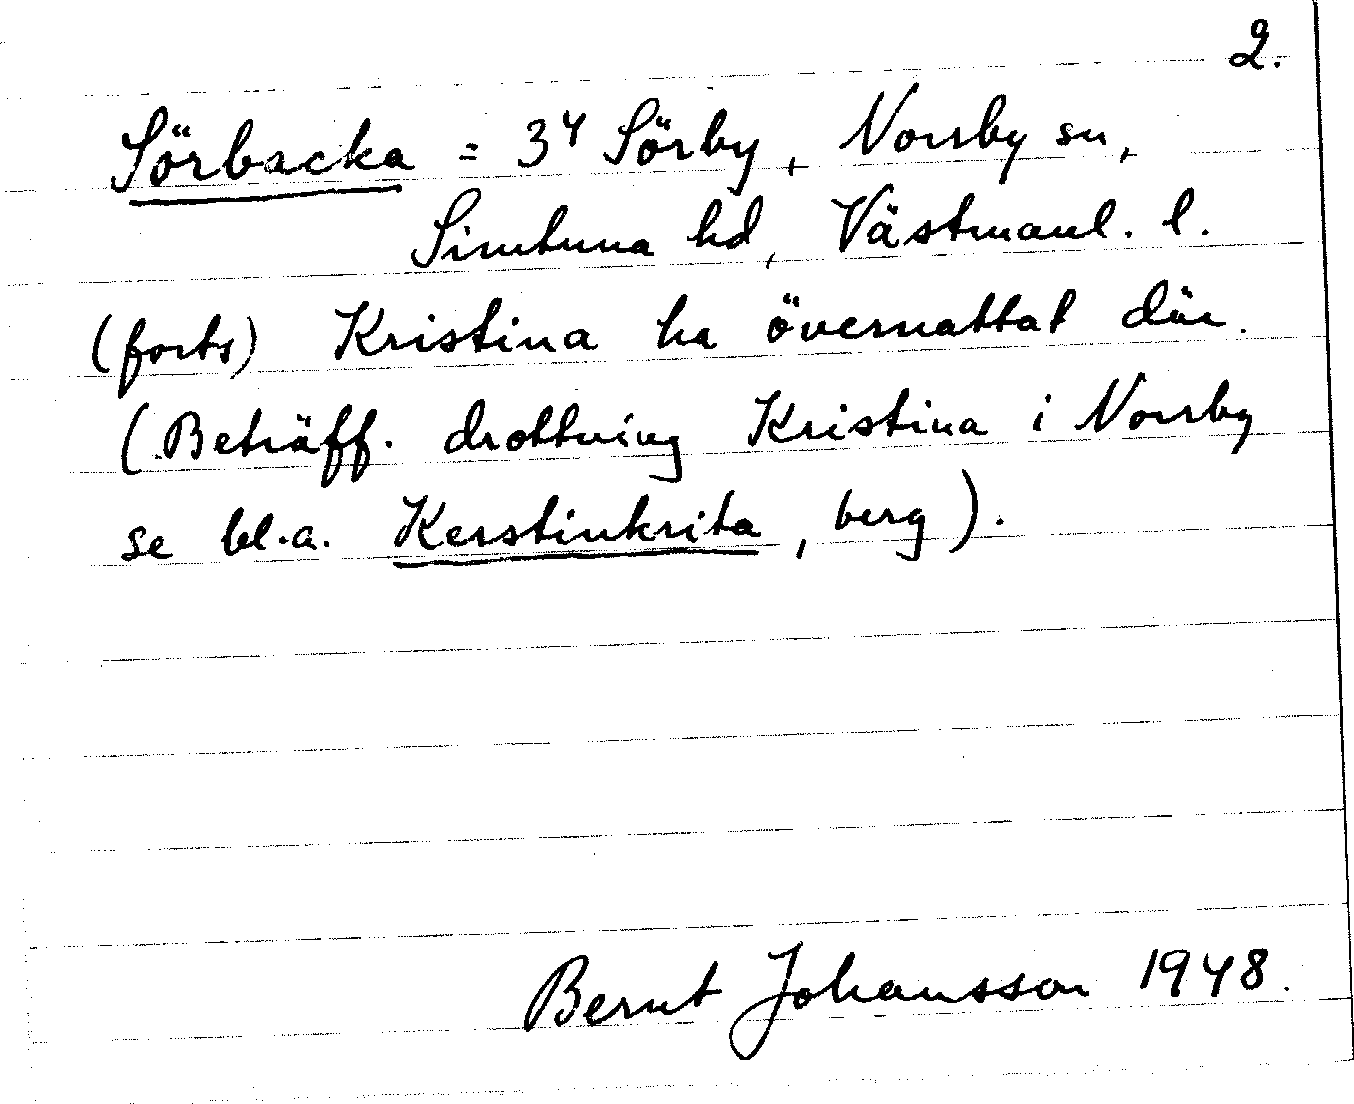 2.
Sörbacka = 3⁴ Sörby, Norrby sn,
Simtuna hd, Västmanl. l.
(forts) Kristina ha övernattat där.
(Beträff. drottning Kristina i Norrby
se bl.a. Kerstinkrita, berg).
Bernt Johansson 1948.